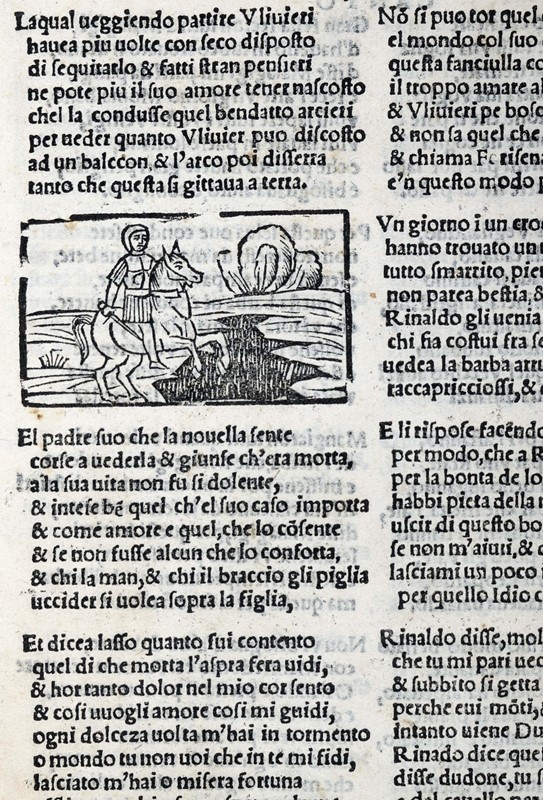 Laqual ueggiendo partire Vliuieri
hauea piu uolte con seco disposto
di sequitarlo & fatti stran pensieri
ne pote piu il suo amore tener nascosto
chel la condusse quel bendatto arcieri
per ueder quanto Vliuier puo discosto
ad un balcon, & l'arco poi disserra
tanto che questa si gittaua a terra.
El padre suo che la nouella sente
corse a uederla & giunse ch'era morta,
a la sua uita non fu si dolente,
& intese bē quel ch'el suo caso importa
& come amore e quel, che lo cōsente
& se non fusse alcun che lo conforta,
& chi la man, & chi il braccio gli piglia
uccider si uolea sopra la figlia,
Et dicea lasso quanto fui contento
quel di che morta l'aspra fera uidi,
& hor tanto dolor nel mio cor sento
& cosi uuogli amore cosi mi guidi,
ogni dolceza uolta m'hai in tormento
o mondo tu non uoi che in te mi fidi,
lasciato m'hai o misera fortuna
Nō si puo tor quel
el mondo col suo
questa fanciulla co
il troppo amare al
& Vliuieri pe bosc
& non sa quel che
& chiama
e'n questo modo p
Vn giorno i un
hanno trouato un
tutto smarrito, pien
non parea bestia, &
Rinaldo gli uenia
chi sia costui fra se
uedea la barba arru
raccapricciossi, &
E li rispose facēndo
per modo, che a R
per la bonta de lo
habbi pieta della
uscir di questo bo
se non m'aiuti, &
lasciami un poco
per quello Idio c
Rinaldo disse, mol
che tu mi pari uec
& subbito si getta
perche eui mōti,
intanto uiene Du
Rinado dice quel
disse dudone, tu s